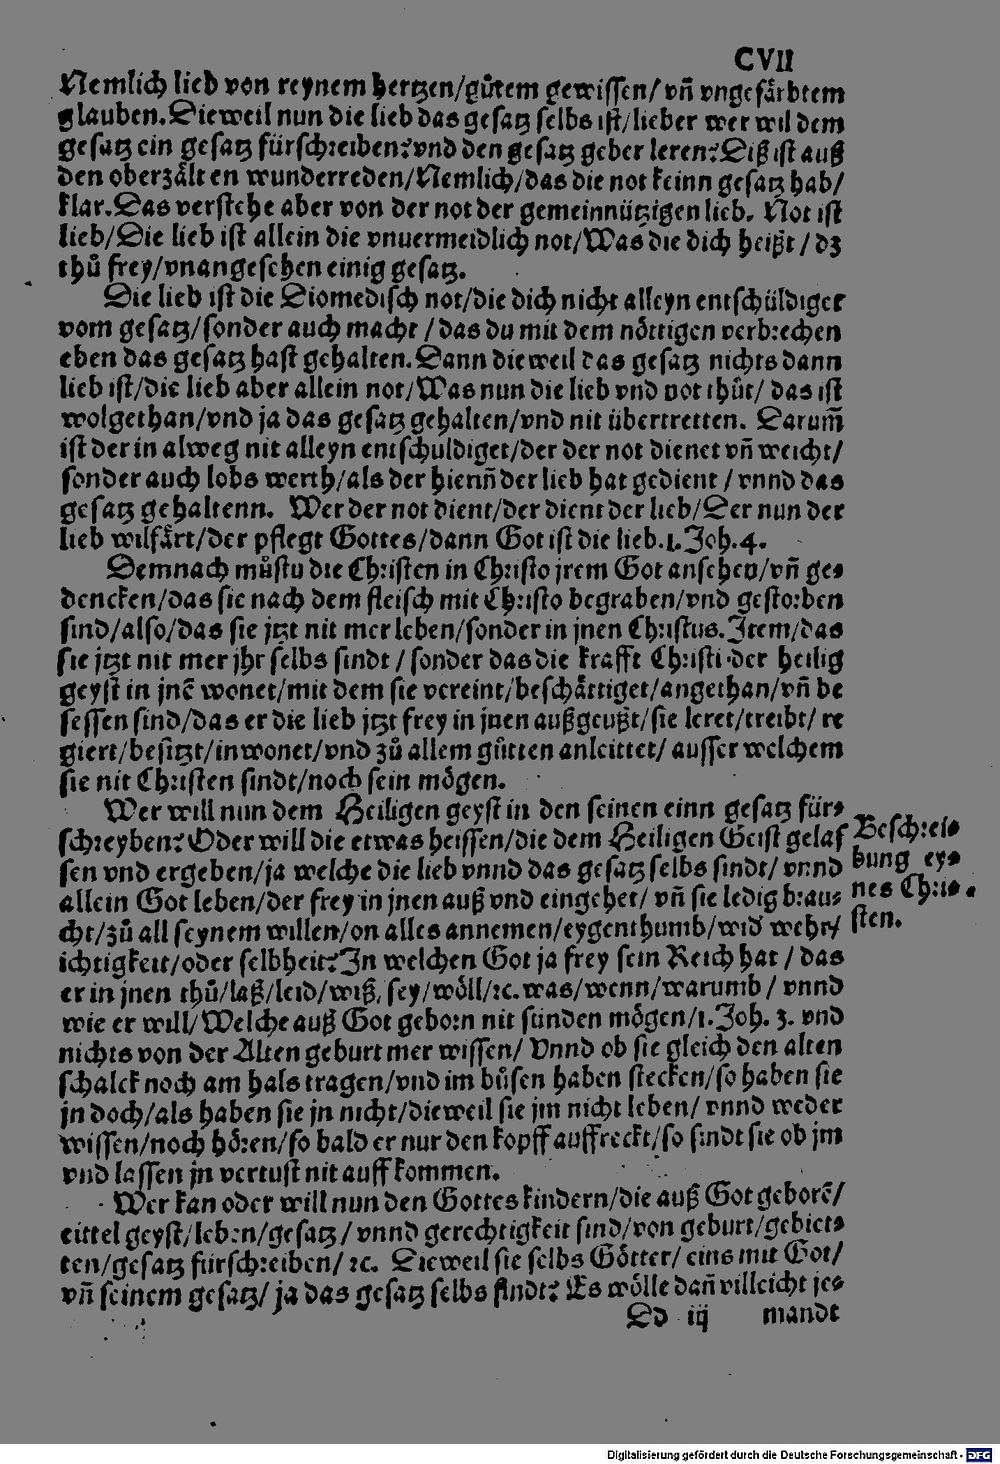 CVII
Nemlich lieb von reynem hertzen/gůtem gewissen/ vñ vngefärbtem
glauben. Dieweil nun die lieb das gesatz selbs ist/lieber wer wil dem
gesatz ein gesatz fürschreiben? vnd den gesatz geber leren? Diß ist auß
den oberzälten wunderreden/Nemlich/das die not keinn gesatz hab/
klar. Das verstehe aber von der not der gemeinnützigen lieb. Not ist
lieb/Die lieb ist allein die vnuermeidlich not/Was die dich heißt/dz
thů frey/vnangesehen einig gesatz.
Die lieb ist die Diomedisch not/die dich nicht alleyn entschüldiget
vom gesatz/sonder auch macht/das du mit dem nöttigen verbrechen
eben das gesatz hast gehalten. Dann dieweil das gesatz nichts dann
lieb ist/die lieb aber allein not/Was nun die lieb vnd not thůt/ das ist
wolgethan/vnd ja das gesatz gehalten/vnd nit übertretten. Darum̃
ist der in alweg nit alleyn entschuldiget/der der not dienet vñ weicht/
sonder auch lobs werth/als der hieriñ der lieb hat gedient/vnnd das
gesatz gehaltenn. Wer der not dient/der dient der lieb/Der nun der
lieb wilfärt/der pflegt Gottes/dann Got ist die lieb. 1. Joh. 4.
Demnach můstu die Christen in Christo jrem Got ansehen/vñ ge⸗
dencken/das sie nach dem fleisch mit Christo begraben/vnd gestorben
sind/also/das sie jtzt nit mer leben/sonder in jnen Christus. Item/das
sie jtzt nit mer jhr selbs sindt/sonder das die krafft Christi der heilig
geyst in jnē wonet/mit dem sie vereint/beschättiget/angethan/vñ be
sessen sind/das er die lieb jtzt frey in jnen außgeußt/sie leret/treibt/re
giert/besitzt/inwonet/vnd zů allem gůtten anleittet/ausser welchem
sie nit Christen sindt/noch sein mögen.
Wer will nun dem Heiligen geyst in den seinen einn gesatz für⸗
schreyben? Oder will die etwas heissen/die dem Heiligen Geist gelas
sen vnd ergeben/ja welche die lieb vnnd das gesatz selbs sindt/vnnd
allein Got leben/der frey in jnen auß vnd eingehet/vñ sie ledig brau⸗
cht/zů all seynem willen/on alles annemen/eygenthumb/wid wehr/
ichtigkeit/oder selbheit? In welchen Got ja frey sein Reich hat/das
er in jnen thů/laß/leid/wiß/sey/wöll/ꝛc. was/wenn/warumb/vnnd
wie er will/Welche auß Got geborn nit sünden mögen/1. Joh. 3. vnd
nichts von der Alten geburt mer wissen/Vnnd ob sie gleich den alten
schalck noch am hals tragen/vnd im bůsen haben stecken/so haben sie
jn doch/als haben sie jn nicht/dieweil sie jm nicht leben/vnnd weder
wissen/noch hören/so bald er nur den kopff auffreckt/so sindt sie ob jm
vnd lassen jn vertust nit auffkommen.
Wer kan oder will nun den Gottes kindern/die auß Got geborē/
eittel geyst/leben/gesatz/vnnd gerechtigkeit sind/von geburt/gebiet⸗
ten/gesatz fürschreiben/ꝛc. Dieweil sie selbs Götter/eins mit Got/
vñ seinem gesatz/ja das gesatz selbs sindt? Es wölle dañ villeicht je⸗
Dd iij mandt
Beschrei⸗
bung ey⸗
nes Chri⸗
sten.
Digitalisierung gefördert durch die Deutsche Forschungsgemeinschaft - DFG